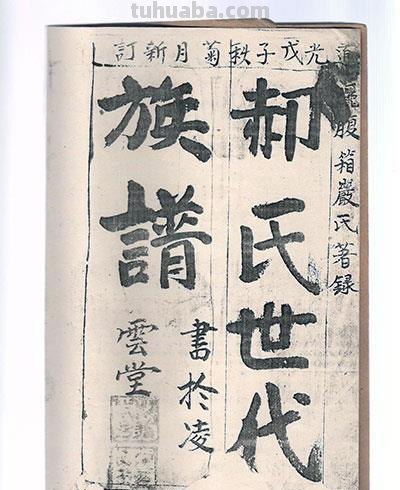 tuhuaba.com
道光戊子秋菊月新訂
腹箱嚴氏著録
郝氏世代
族譜
書於凌
雲堂